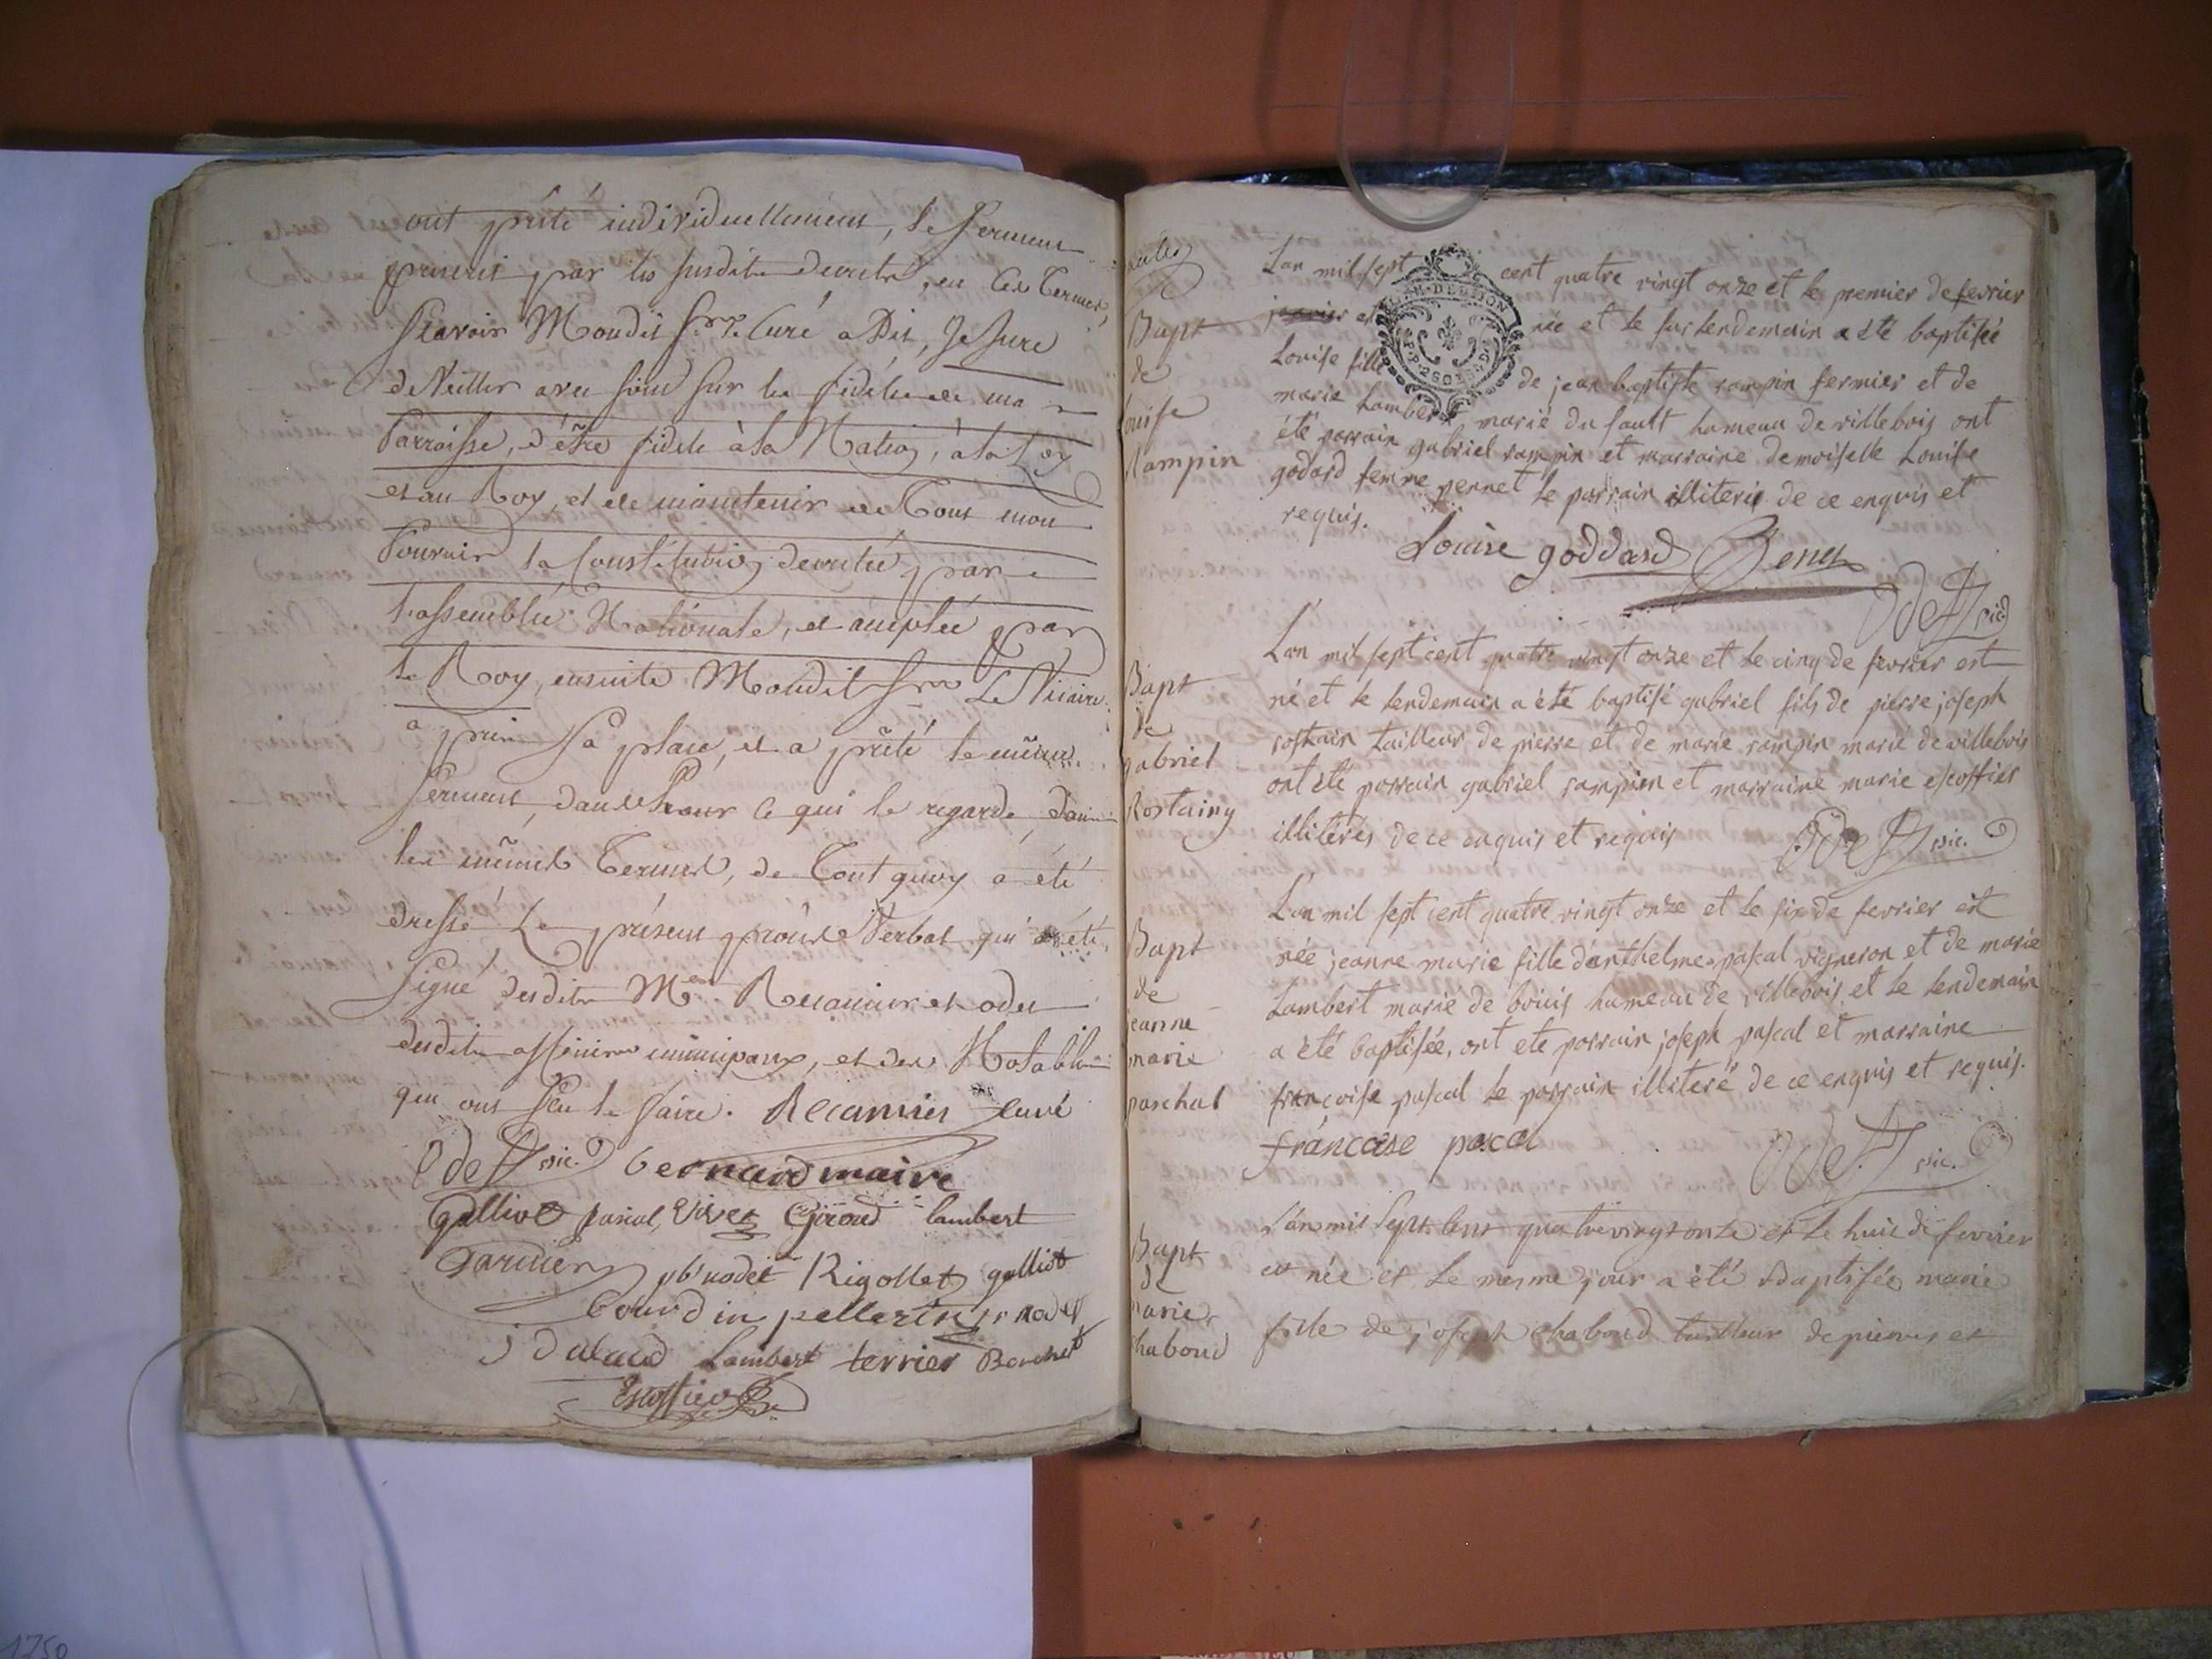 ont prêté individuellement, le Serment
prescrit par les susdits decrets, en ces Termes,
Scavoir Moudit Sr. Curé a Dit, Je Jure
de Veiller avec soin sur les fideles de ma
Parroisse, d'être fidele à la Nation, à la Loy
et au Roy, et de maintenir de Tout mon
Pouvoir la Constitution decretée par
l'assemblée Nationale, et acceptée par
le Roy, ensuite Moudit Sr. Le Vicaire
a prins sa place, et a prêté le même
Serment, dans et Pour ce qui le regarde, dans
les mêmes Termes, de Tout quoy a été
dressé Le présent procès Verbal qui a été
Signé desdits Mes. Recamier et odet
desdits officiers municipaux, et des Notables
qui ont Sçu le faire. Recamier curé
Odet vic. bernard maire
Galliot pascal, Vivet Giroud lambert
Tarcier pb. nodet Rigollet galliot
bourdin pellerin nodet
Lambert terrier
Escoffier
Bapt
de
Louise
Rampin
L'an mil sept cent quatre vingt onze et le premier de fevrier
janvier est née et le surlendemain a été baptisée
Louise fille de jean baptiste rampin fermier et de
marie Lambert marié du sault hameau de villebois ont
été parrain gabriel rampin et marraine demoiselle Louise
godard femme pernet le parrain illiteré de ce enquis et
requis.
Louise goddard
Odet vic.
Bapt
de
gabriel
Rostaing
L'an mil sept cent quatre vingt onze et le cinq de fevrier est
né et le lendemain a été baptisé gabriel fils de pierre joseph
rostain tailleur de pierre et de marie rampin marié de villebois
ont été parrain gabriel rampin et marraine marie escoffier
illiterés de ce enquis et requis
Odet vic.
Bapt
de
jeanne
marie
paschal
L'an mil sept cent quatre vingt onze et le six de fevrier est
née jeanne marie fille d'anthelme pascal vigneron et de marie
Lambert marié de bouis hameau de villebois et le lendemain
a été baptisée, ont eté parrain joseph pascal et marraine
françoise pascal le parrain illiteré de ce enquis et requis.
francoise pascal
Odet vic.
Bapt
de
marie
chaboud
L'an mil sept cent quatrevingt onze et le huit de fevrier
est née et le mesme jour a été Baptisée marie
fille de joseph chaboud tailleur de pierres et
1750